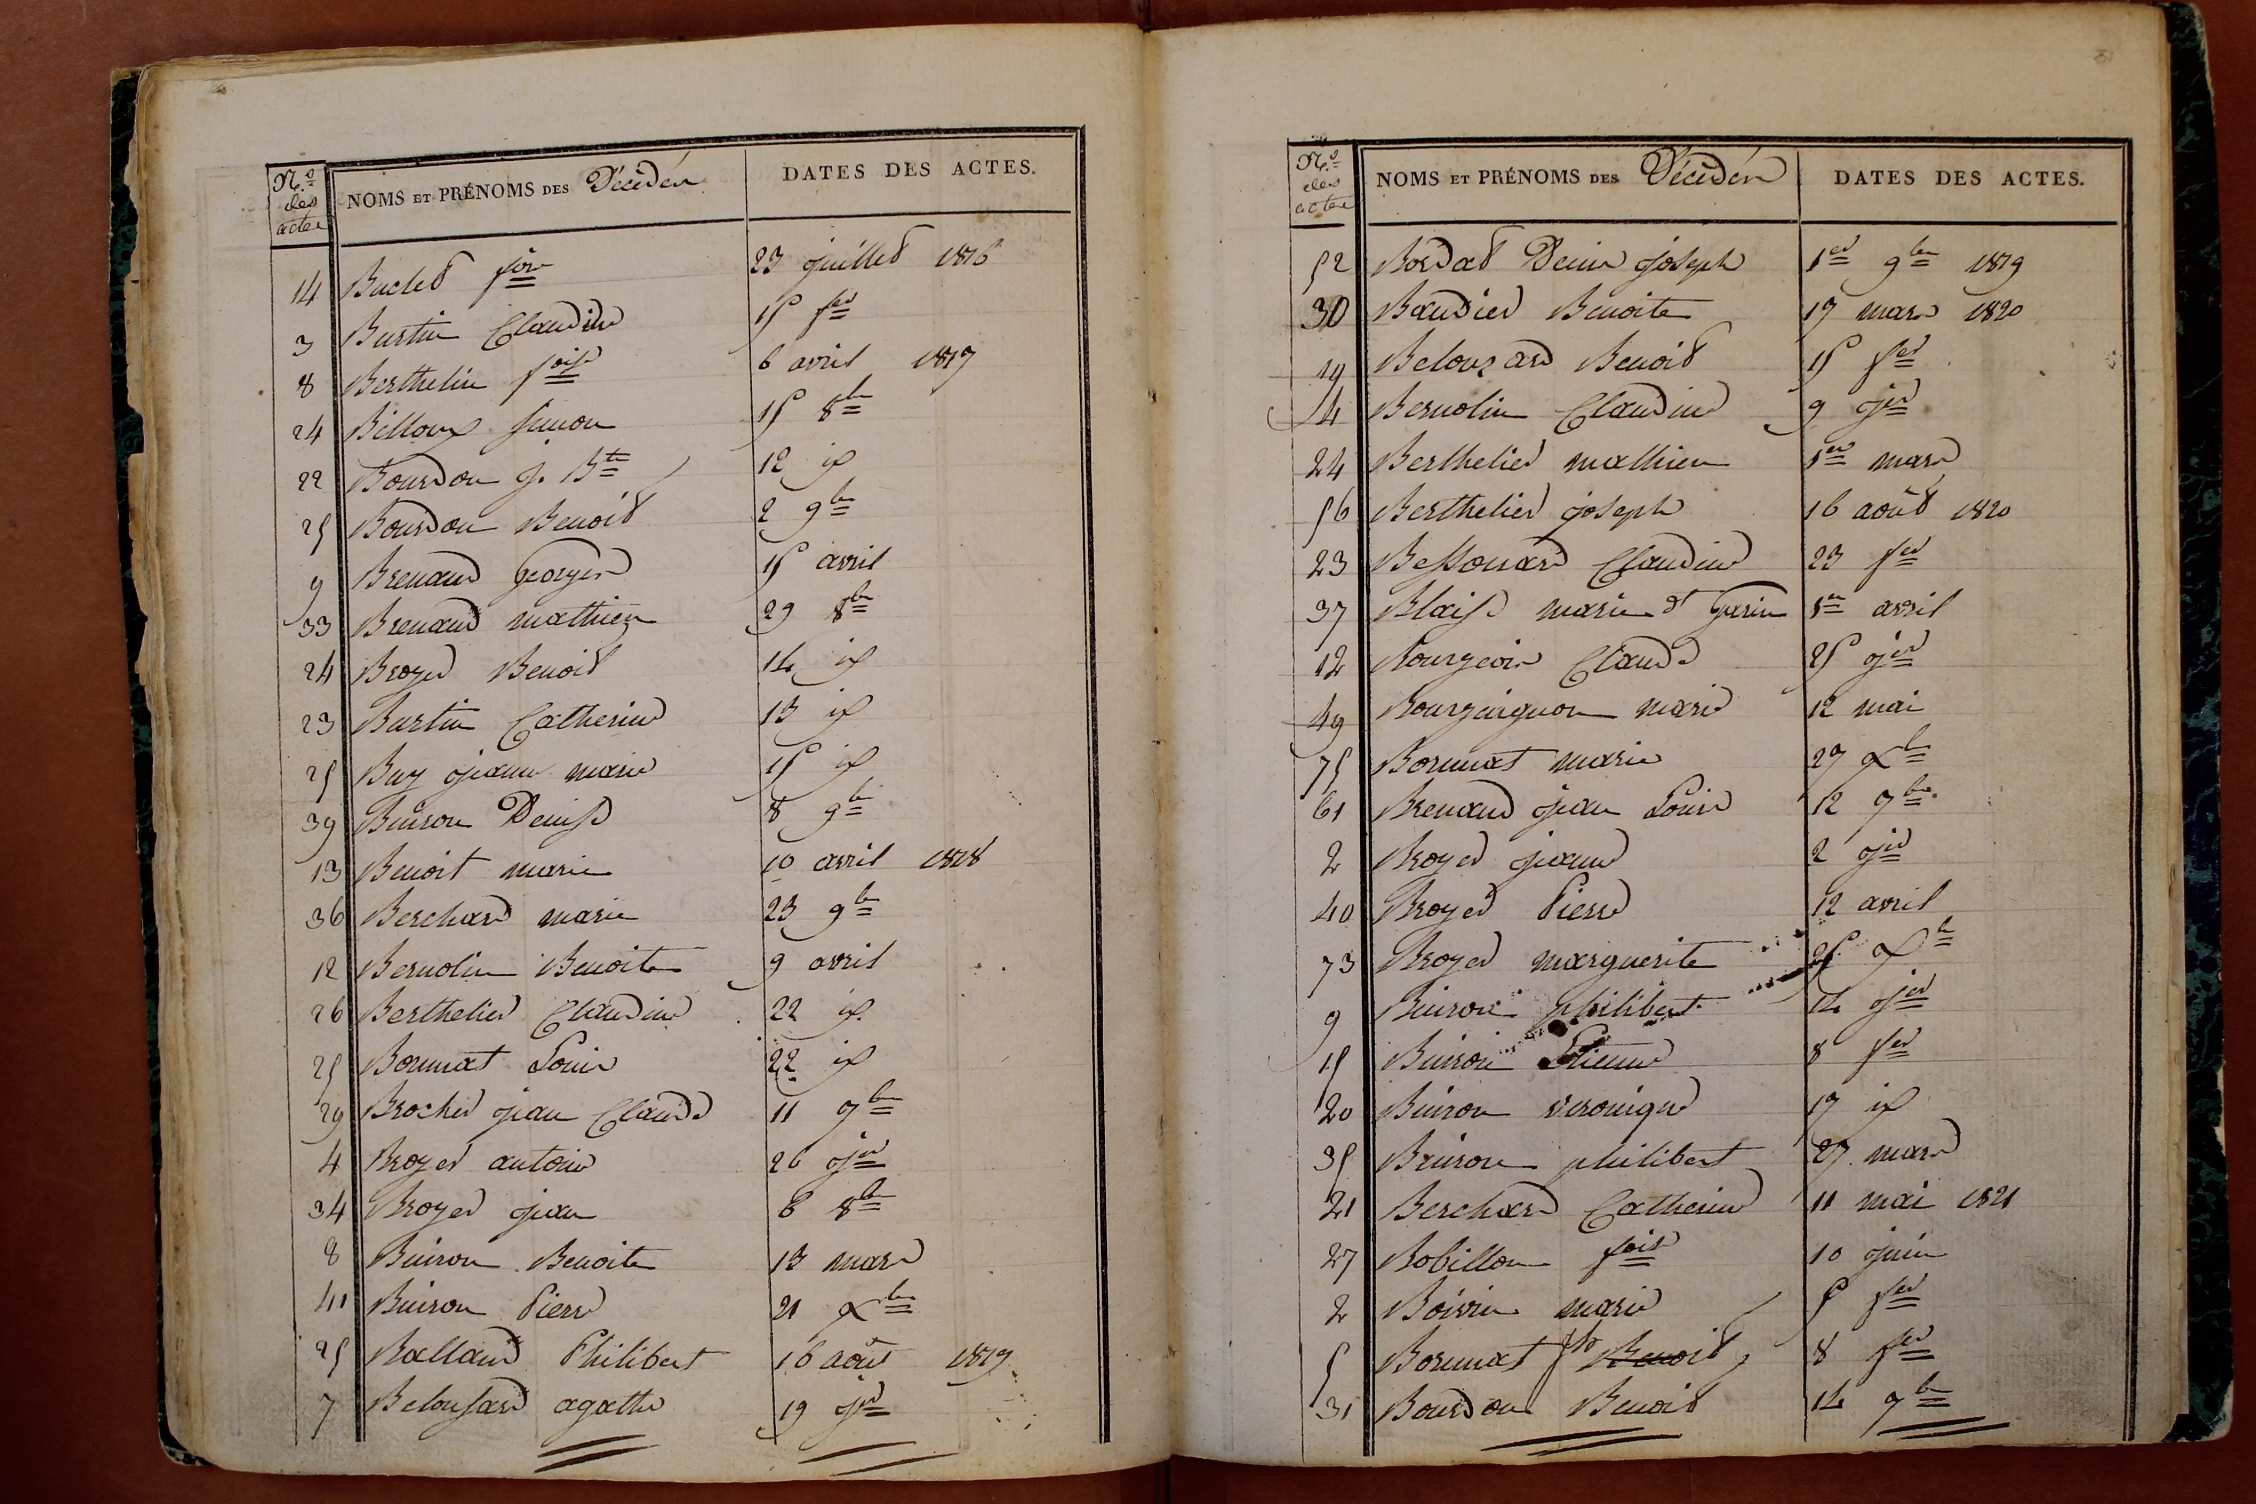 N.os des actes
NOMS ET PRÉNOMS DES Décédés
DATES DES ACTES.
14 Buclet fois 23 juillet 1816
3 Burtin Claudine 15 fer
8 Berthelin foise 6 avril 1817
24 Billoux Simon 15 8bre
22 Bourdon j. Bte 12 id
25 Bourdon Benoit 2 9bre
9 Brenaud Georges 15 avril
33 Brenaud mathieu 29 8bre
24 Broyer Benoit 14 id
23 Burtin Catherine 13 id
25 Buy jeanne marie 15 id
39 Buiron Denise 8 9bre
13 Benoit marie 10 avril 1818
36 Berchard marie 23 9bre
12 Bernolin Benoite 9 avril
26 Berthelier Claudine 22 id
25 Bonnat Louis 22 id
29 Brochet jean Claude 11 7bre
4 Broyer antoine 26 jer
34 Broyer jean 6 8bre
8 Buiron Benoite 13 mars
41 Buiron Pierre 21 Xbre
25 Balland Philibert 16 août 1819
7 Belousard agathe 19 jer
N.os des actes
NOMS ET PRÉNOMS DES Décédés
DATES DES ACTES.
52 Bordat Denis joseph 1er 9bre 1819
30 Baudier Benoite 17 mars 1820
19 Belouzard Benoit 15 fer
4 Bernolin Claudine 9 jer
24 Berthelier mathieu 1er mars
56 Berthelier joseph 16 août 1820
23 Bessonard Claudine 23 fer
37 Blaise marie 1er avril
12 Bourgeois Claude 25 jer
49 Bourguignon marie 12 mai
75 Bonnat marie 27 Xbre
61 Brenaud jean Louis 12 7bre
2 Broyer jeanne 2 jer
40 Broyer Pierre 12 avril
73 Broyer marguerite 25 Xbre
9 Buiron philibert 14 jer
15 Buiron Etienne 8 fer
20 Buiron veronique 17 id
35 Buiron philibert 27 mars
21 Berchard Catherine 11 mai 1821
27 Robillon foise 10 juin
2 Boivin marie 5 fer
5 Bonnat Benoit 8 fer
31 Bourdon Benoit 14 7bre